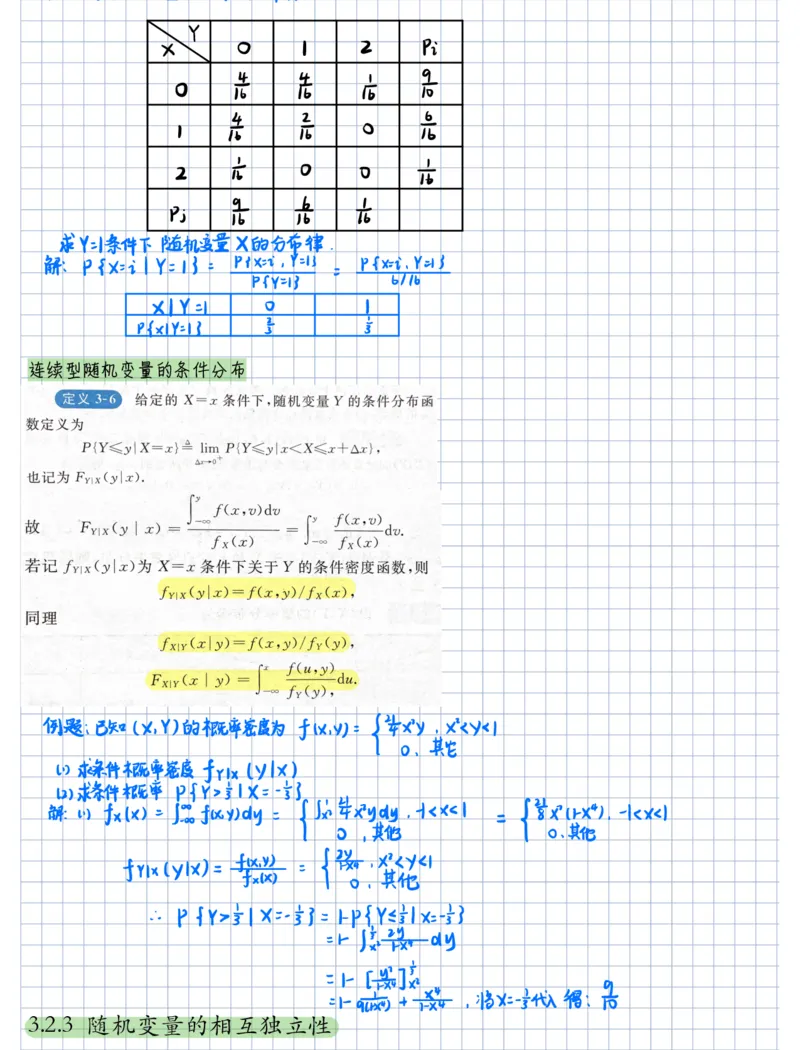 X Y 0 1 2 Pi
0 4/16 4/16 1/16 9/10
1 4/16 2/16 0 6/16
2 1/16 0 0 1/16
Pj 9/16 6/16 1/16
求Y=1条件下 随机变量X的分布律.
解: P{X=i|Y=1} = P{X=i,Y=1}/P{Y=1} = P{X=i,Y=1}/(6/16)
X|Y=1 0 1
P{X|Y=1} 2/3 1/3
连续型随机变量的条件分布
定义 3-6 给定的 X=x 条件下,随机变量 Y 的条件分布函
数定义为
P{Y≤y|X=x} ≜ lim_{Δx→0⁺} P{Y≤y|x<X≤x+Δx},
也记为 F_{Y|X}(y|x).
故 F_{Y|X}(y | x) = ∫_{-∞}^{y} f(x,v)dv / f_X(x) = ∫_{-∞}^{y} f(x,v)/f_X(x) dv.
若记 f_{Y|X}(y|x)为 X=x 条件下关于 Y 的条件密度函数,则
f_{Y|X}(y|x)=f(x,y)/f_X(x),
同理
f_{X|Y}(x|y)=f(x,y)/f_Y(y),
F_{X|Y}(x | y) = ∫_{-∞}^{x} f(u,y)/f_Y(y), du.
例题:已知(X,Y)的概率密度为 f(x,y)= { 21/4 x²y, x²<y<1
0, 其它
(1) 求条件概率密度 f_{Y|X}(y|x)
(2) 求条件概率 P{Y>1/3|X=-1/3}
解:(1) f_X(x) = ∫_{-∞}^{∞} f(x,y)dy = { ∫_{x²}^{1} 21/4 x²y dy, -1<x<1 = { 21/8 x²(1-x⁴), -1<x<1
0, 其他 0, 其他
f_{Y|X}(y|x) = f(x,y)/f_X(x) = { 2y/(1-x⁴), x²<y<1
0, 其他
∴ P{Y>1/3|X=-1/3} = 1-P{Y≤1/3|X=-1/3}
=1-∫_{x²}^{1/3} 2y/(1-x⁴) dy
=1-[y²/(1-x⁴)]_{x²}^{1/3}
=1-1/(9(1-x⁴)) + x⁴/(1-x⁴), 将X=-1/3代入得: 9/10
3.2.3 随机变量的相互独立性